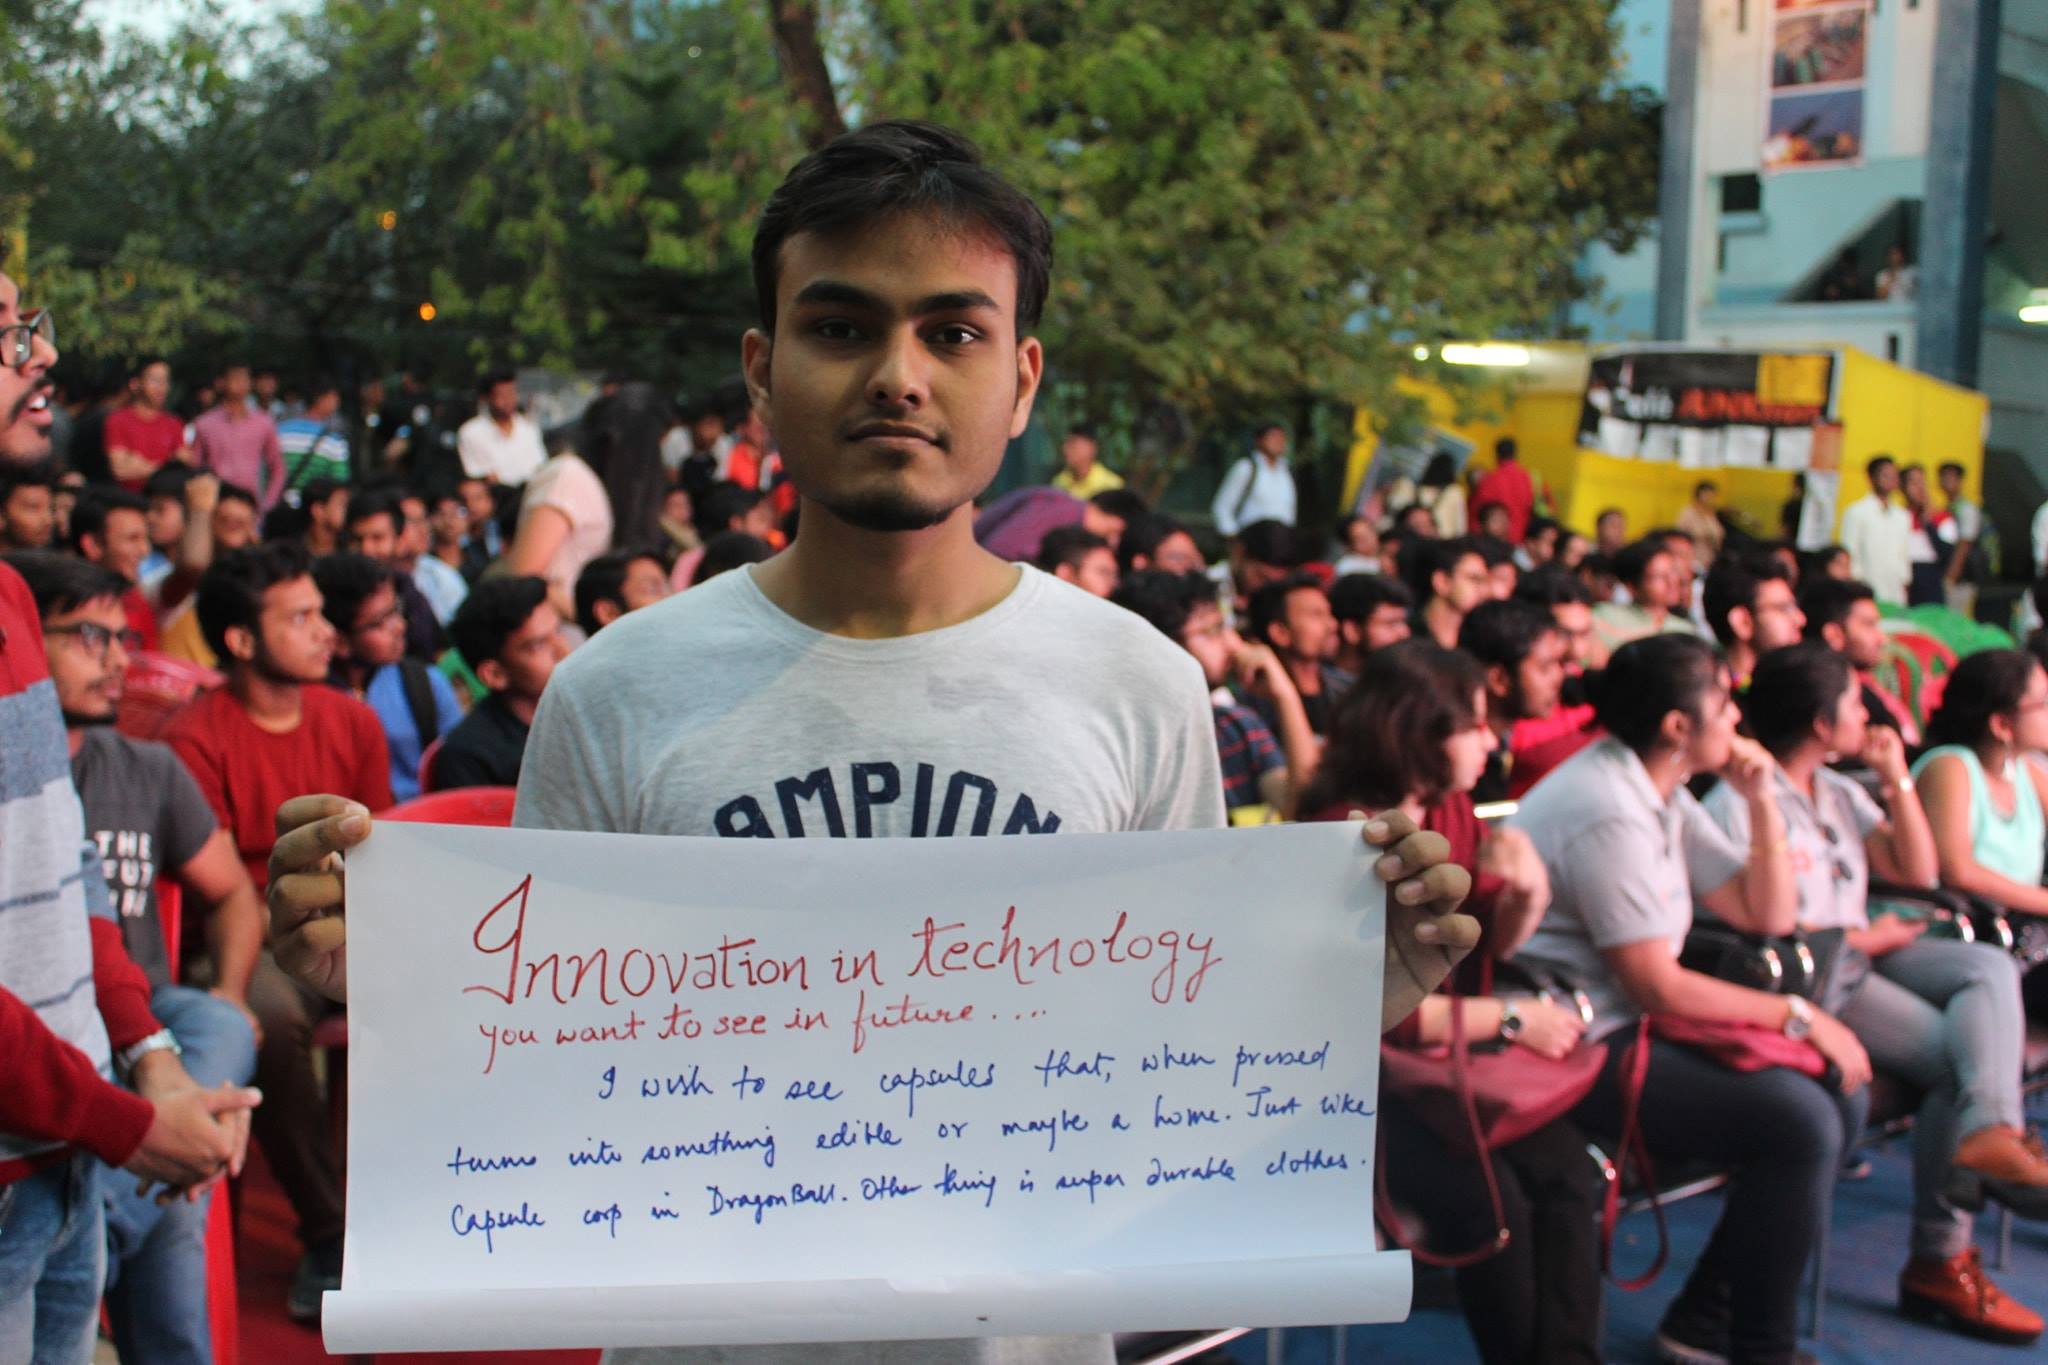 AMPION
THE
FUT
Innovation in technology
you want to see in future....
I wish to see capsules that, when pressed
turns into something edible or maybe a home. Just like
Capsule corp in DragonBall. Other thing is super durable clothes.